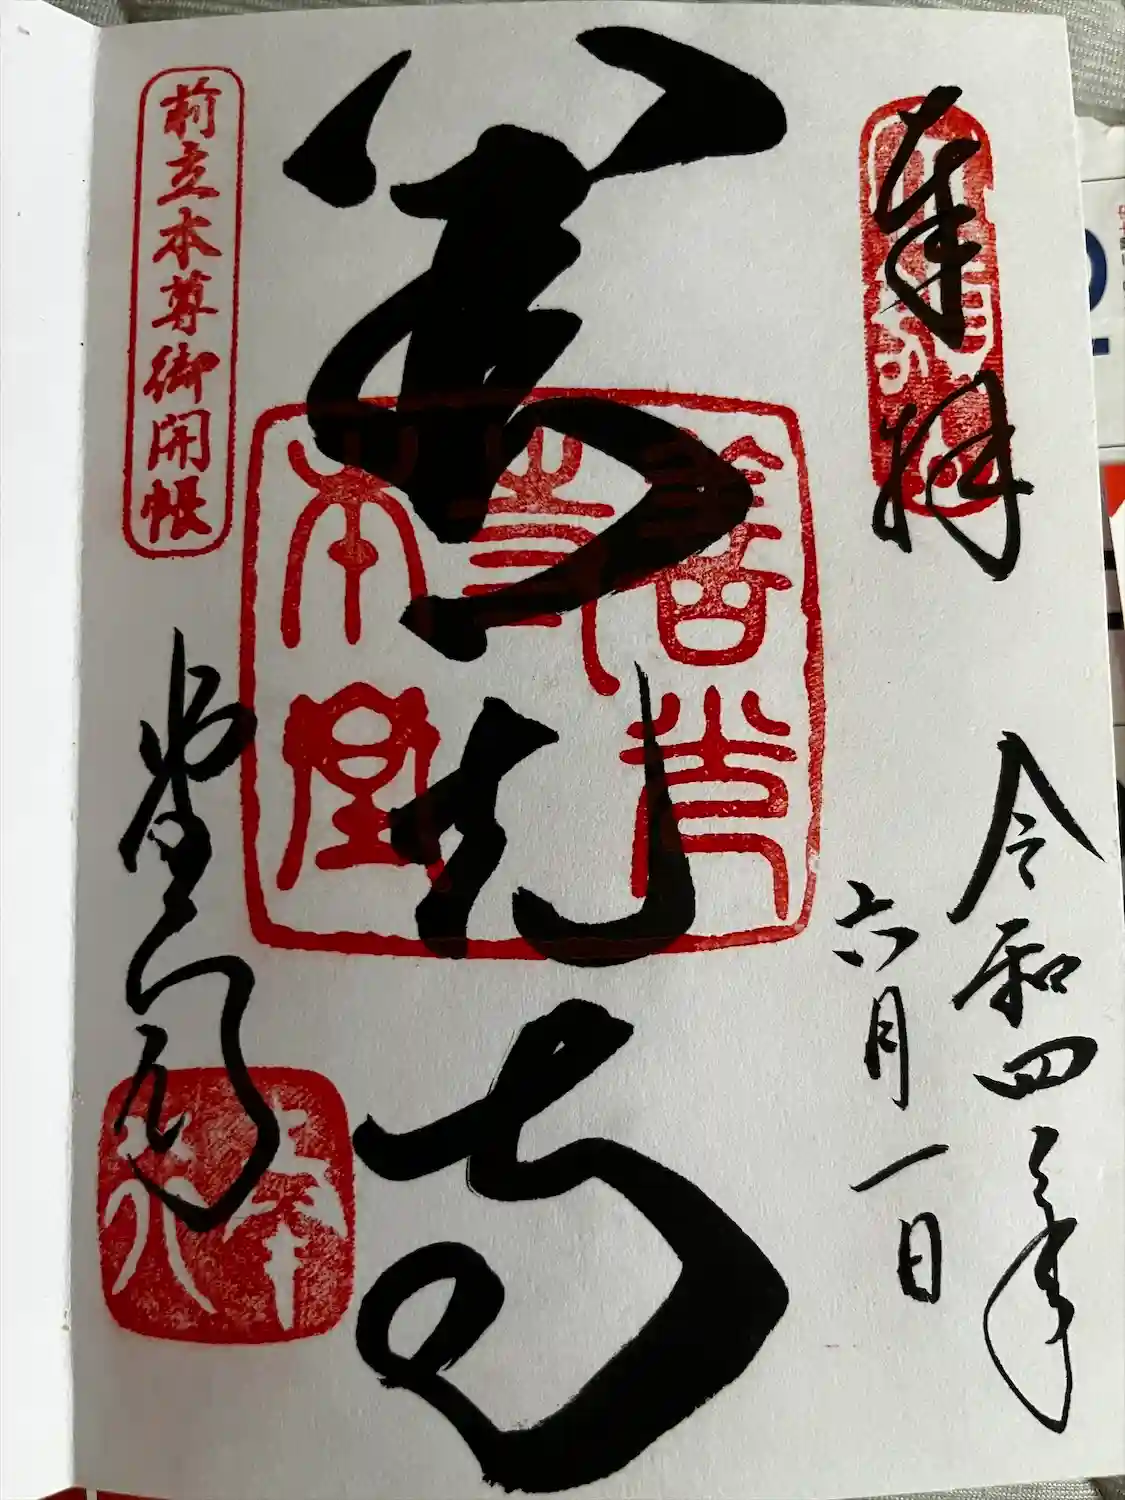 奉拝
令和四年
六月一日
善光寺
善光
寺
本堂
前立本尊御開帳